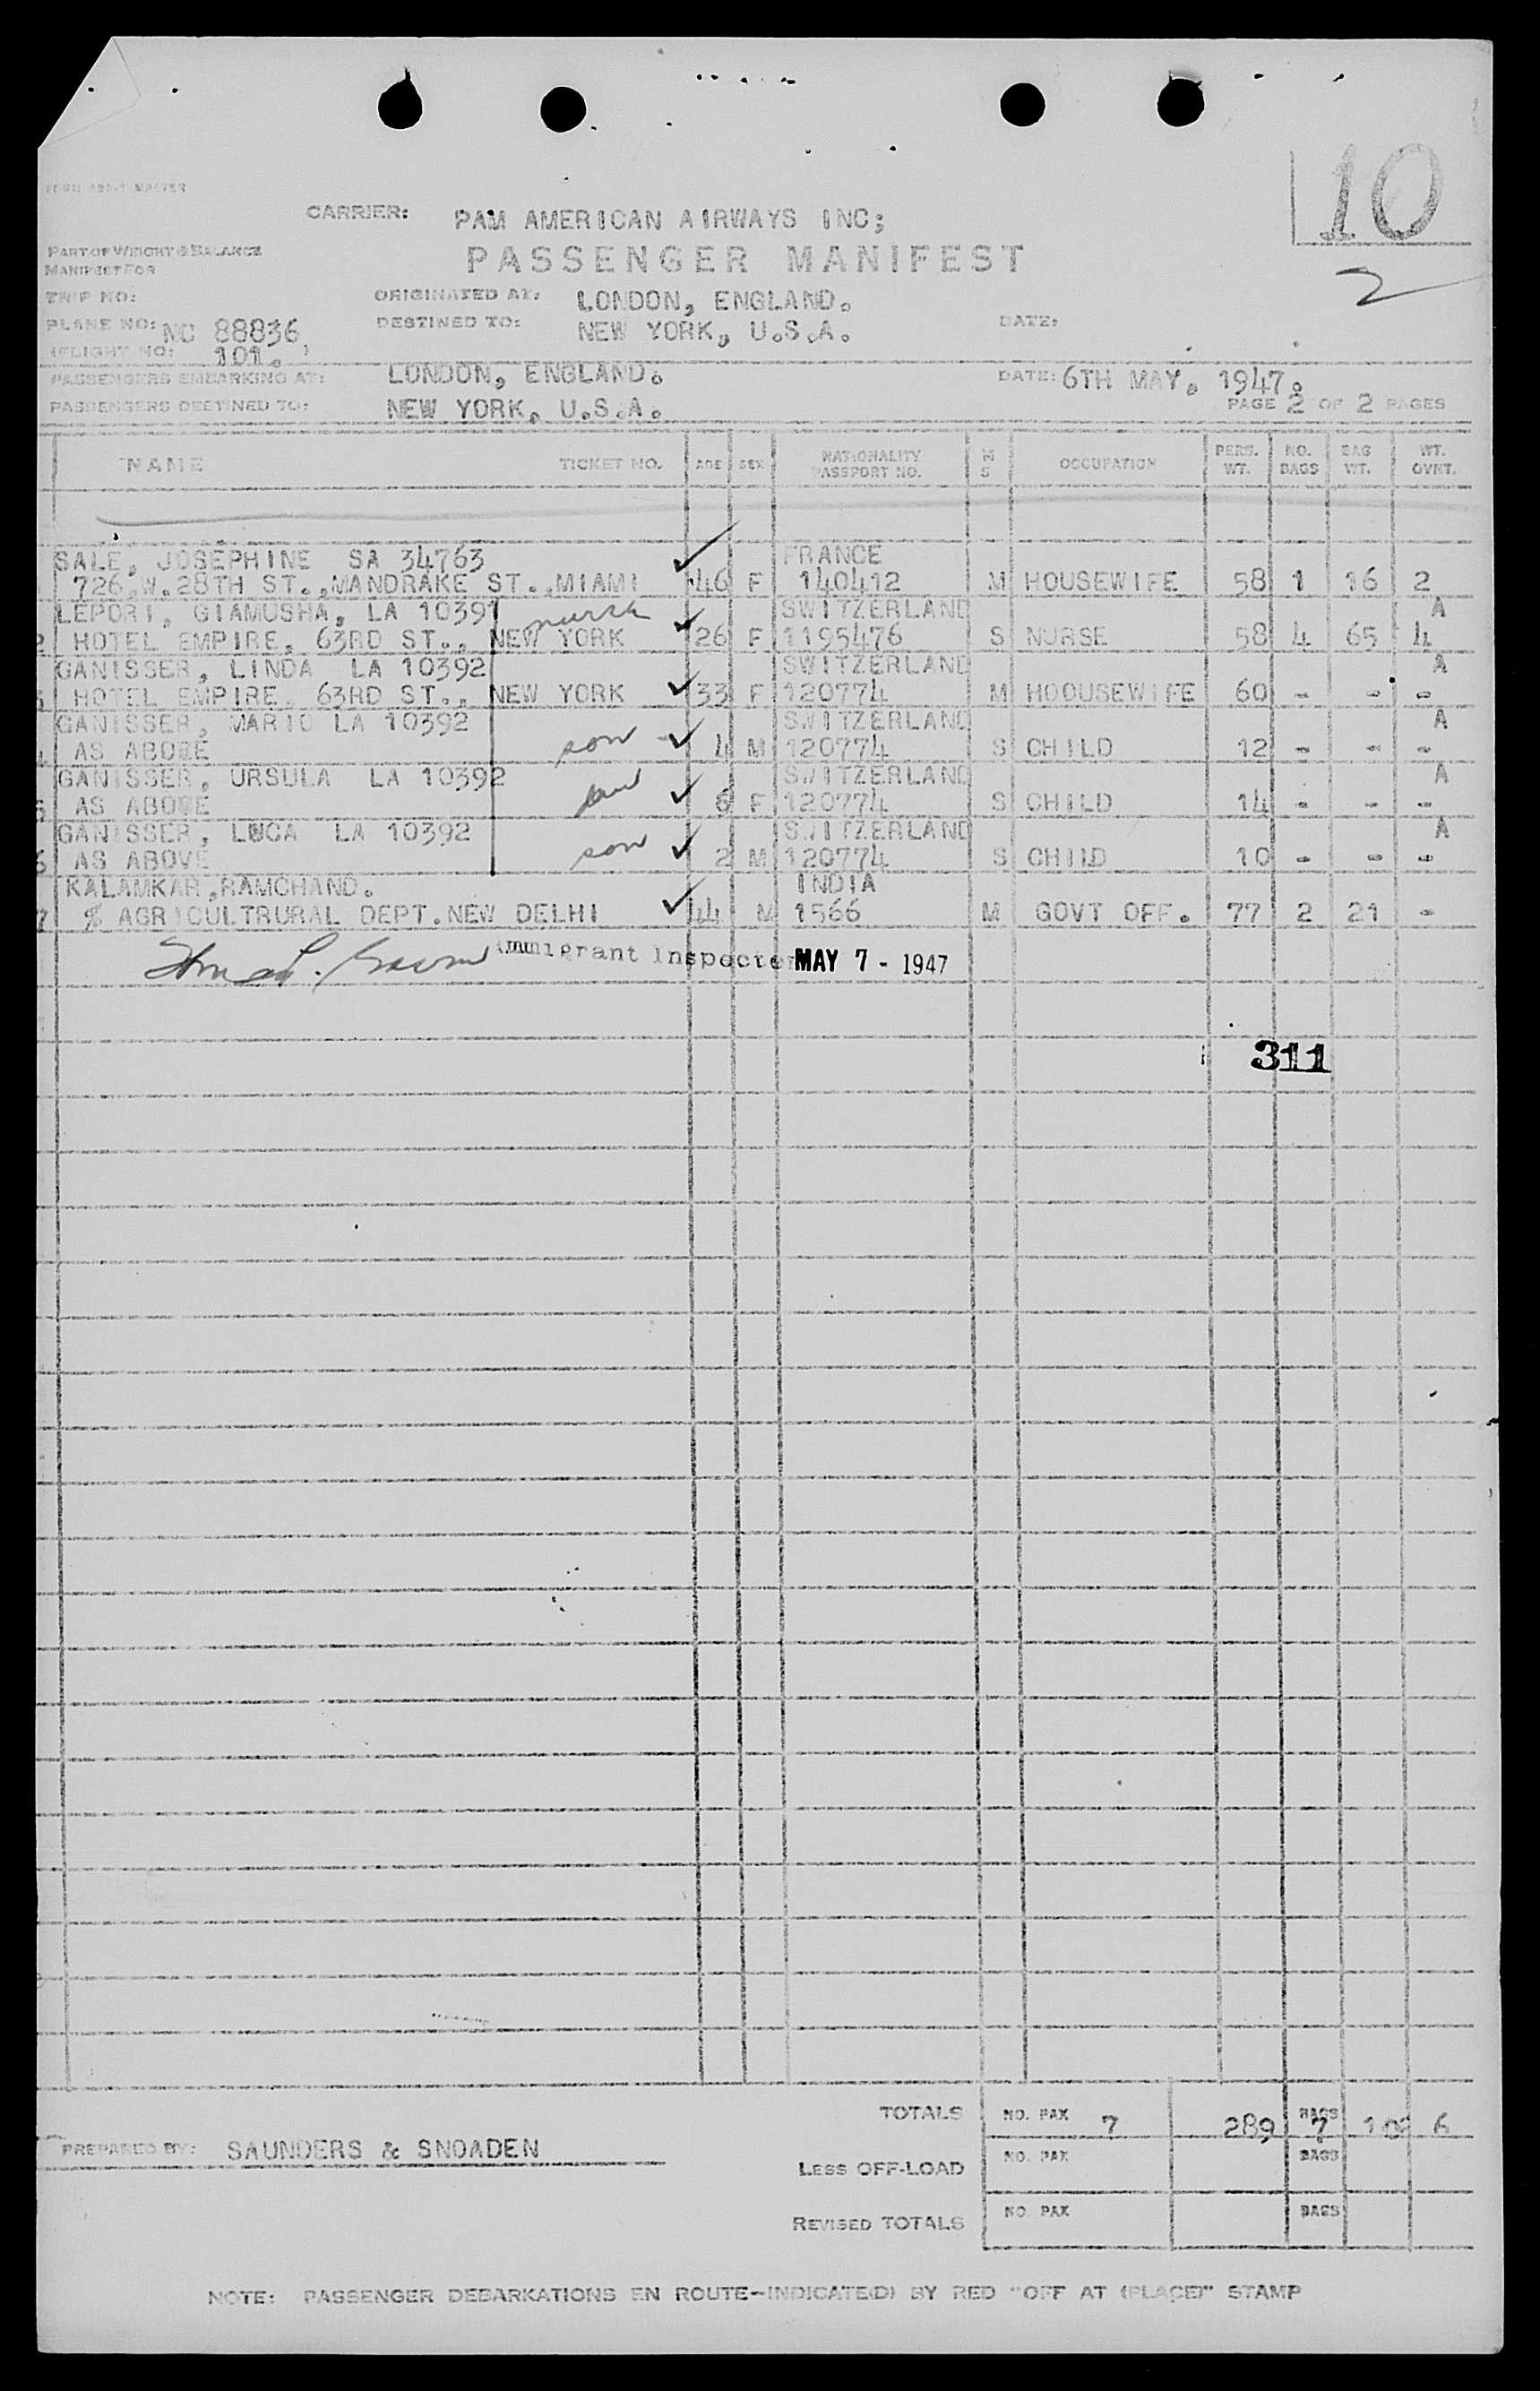 10
2
FORM MASTER
CARRIER: PAM AMERICAN AIRWAYS INC;
PART OF WEIGHT & BALANCE
MANIFEST FOR
PASSENGER MANIFEST
TRIP NO: ORIGINATED AT: LONDON, ENGLAND.
PLANE NO: NC 88836 DESTINED TO: NEW YORK, U.S.A. DATE:
(FLIGHT NO: 101. )
PASSENGERS EMBARKING AT: LONDON, ENGLAND. DATE: 6TH MAY. 1947.
PASSENGERS DESTINED TO: NEW YORK, U.S.A. PAGE 2 OF 2 PAGES
NAME TICKET NO. AGE SEX NATIONALITY PASSPORT NO. M S OCCUPATION PERS. WT. NO. BAGS BAG WT. WT. OVNT.
SALE, JOSEPHINE SA 34763 FRANCE
726,W.28TH ST.,MANDRAKE ST.,MIAMI 46 F 140412 M HOUSEWIFE 58 1 16 2
LEPORI, GIAMUSHA, LA 10391 nurse SWITZERLAND A
2 HOTEL EMPIRE, 63RD ST., NEW YORK 26 F 1195476 S NURSE 58 4 65 4
GANISSER, LINDA LA 10392 SWITZERLAND A
HOTEL EMPIRE, 63RD ST., NEW YORK 33 F 120774 M HOOUSEWIFE 60 - - -
GANISSER, MARIO LA 10392 SWITZERLAND A
AS ABOVE son - 4 M 120774 S CHILD 12 - - -
GANISSER, URSULA LA 10392 SWITZERLAND A
5 AS ABOVE 6 F 120774 S CHILD 14 - - -
GANISSER, LUCA LA 10392 SWITZERLAND A
6 AS ABOVE son 2 M 120774 S CHILD 10 - - -
KALAMKAR,RAMCHAND. INDIA
7 % AGRICULTRURAL DEPT.NEW DELHI 44 M 1566 M GOVT OFF. 77 2 21 -
Immigrant Inspector MAY 7 - 1947
311
TOTALS NO. PAX 7 289 BAGS 7 102 6
PREPARED BY: SAUNDERS & SNOADEN
LESS OFF-LOAD NO. PAX BAGS
REVISED TOTALS NO. PAX BAGS
NOTE: PASSENGER DEBARKATIONS EN ROUTE-INDICATE(D) BY RED "OFF AT (PLACE)" STAMP